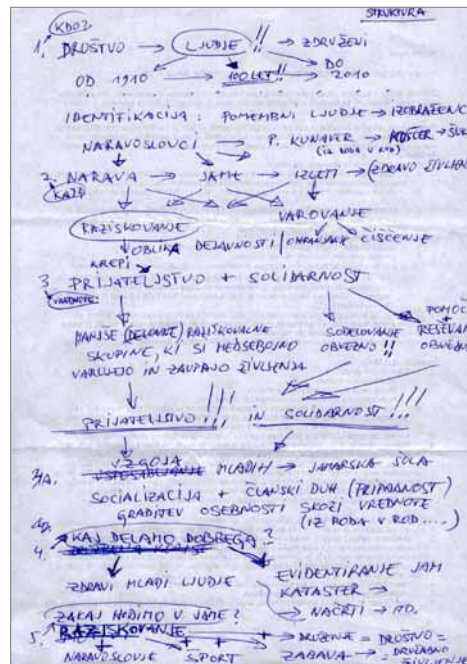 STRUKTURA
KDO?
1. DRUŠTVO → LJUDJE!! → ZDRUŽENI
OD 1910 → 100 LET!! → DO 2010
IDENTIFIKACIJA: POMEMBNI LJUDJE → IZOBRAŽENC
NARAVOSLOVCI → P. KUNAVER →
(IZ RODA V ROD)
2. NARAVA → JAME → IZLETI → (ZDRAVO ŽIVLJEN
RAZISKOVANJE VAROVANJE
OBLIKA DEJAVNOSTI / OHRANJANJE ČIŠČENJE
KREPI
3. PRIJATELJSTVO + SOLIDARNOST
VREDNOTE
MANJŠE (DELOVNE) RAZISKOVALNE
SKUPINE, KI SI MEDSEBOJNO
VARUJEJO IN ZAUPAJO ŽIVLJENJA
SODELOVANJE
OBVEZNO!!
POMOČ
REŠEVAN
OBVEZN
PRIJATELJSTVO!!! IN SOLIDARNOST!!!
3/A. VZGOJA
MLADIH → JAMARSKA ŠOLA
SOCIALIZACIJA + ČLANSKI DUH (PRIPADNOST)
GRADITEV OSEBNOSTI SKOZI VREDNOTE
(IZ RODA V ROD....)
4. KAJ DELAMO DOBREGA?
ZDRAVI MLADI LJUDJE
EVIDENTIRANJE JAM
KATASTER →
→ NAČRTI → ITD.
ZAKAJ HODIMO V JAME?
5. RAZISKOVANJE + + → DRUŽENJE = DRUŠTVO =
NARAVOSLOVJE ŠPORT ZABAVA → = DRUŽABNO
ŽIVLJENJE